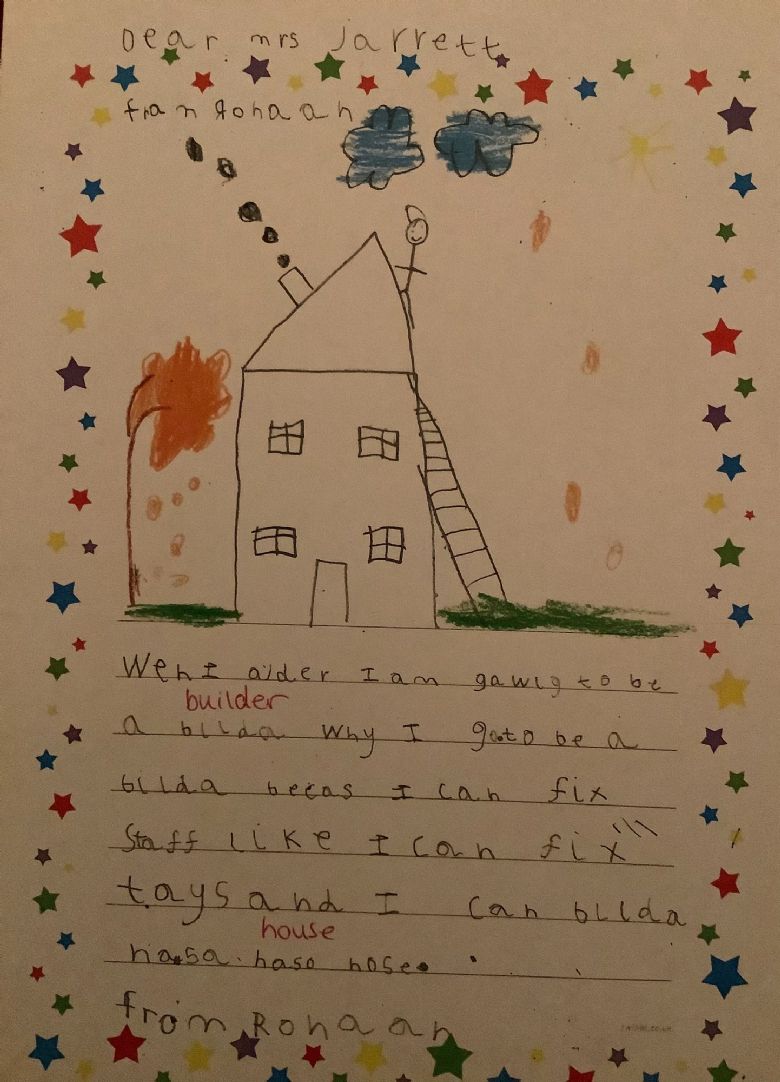 Dear mrs Jarrett
from Rohaan
Wen I older I am gawig to be
builder
a bllda Why I goto be a
bllda becas I can fix
Staff like I can fix
tays and I can bllda
house
hasa. haso hose.
from Rohaan